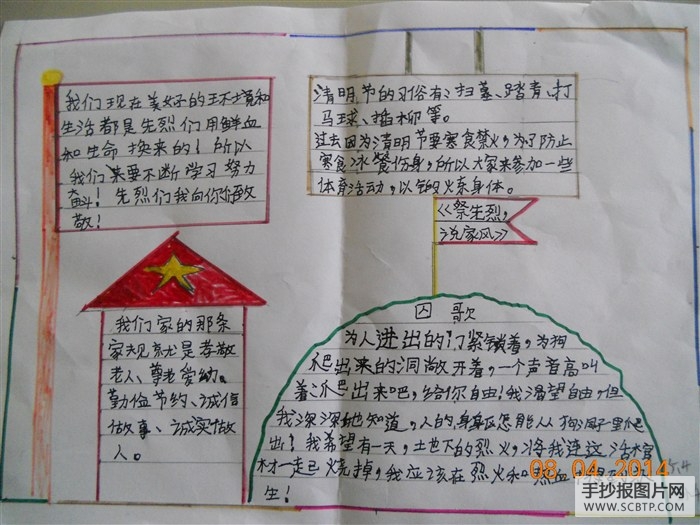 我们现在美好的环境和
生活都是先烈们用鲜血
和生命换来的！所以
我们来要不断学习努力
奋斗！先烈们我向你们致
敬！
清明节的习俗有：扫墓、踏青、打
马球、插柳等。
过去因为清明节要寒食禁火，为了防止
寒食冰餐伤身，所以大家来参加一些
体育活动，以锻炼身体。
《祭先烈，
说家风》
我们家的那条
家规就是孝敬
老人、尊老爱幼。
勤俭节约、诚信
做事、诚实做
人。
囚歌
为人进出的门紧锁着，为狗
爬出来的洞敞开着，一个声音高叫
着：爬出来吧，给你自由！我渴望自由，但
我深深地知道，人的身躯怎能从狗洞子里爬
出！我希望有一天，土地下的烈火，将我连这活棺
材一起烧掉，我应该在烈火和热血
生！
08.04.2014
手抄报图片网
WWW.SCBTP.COM